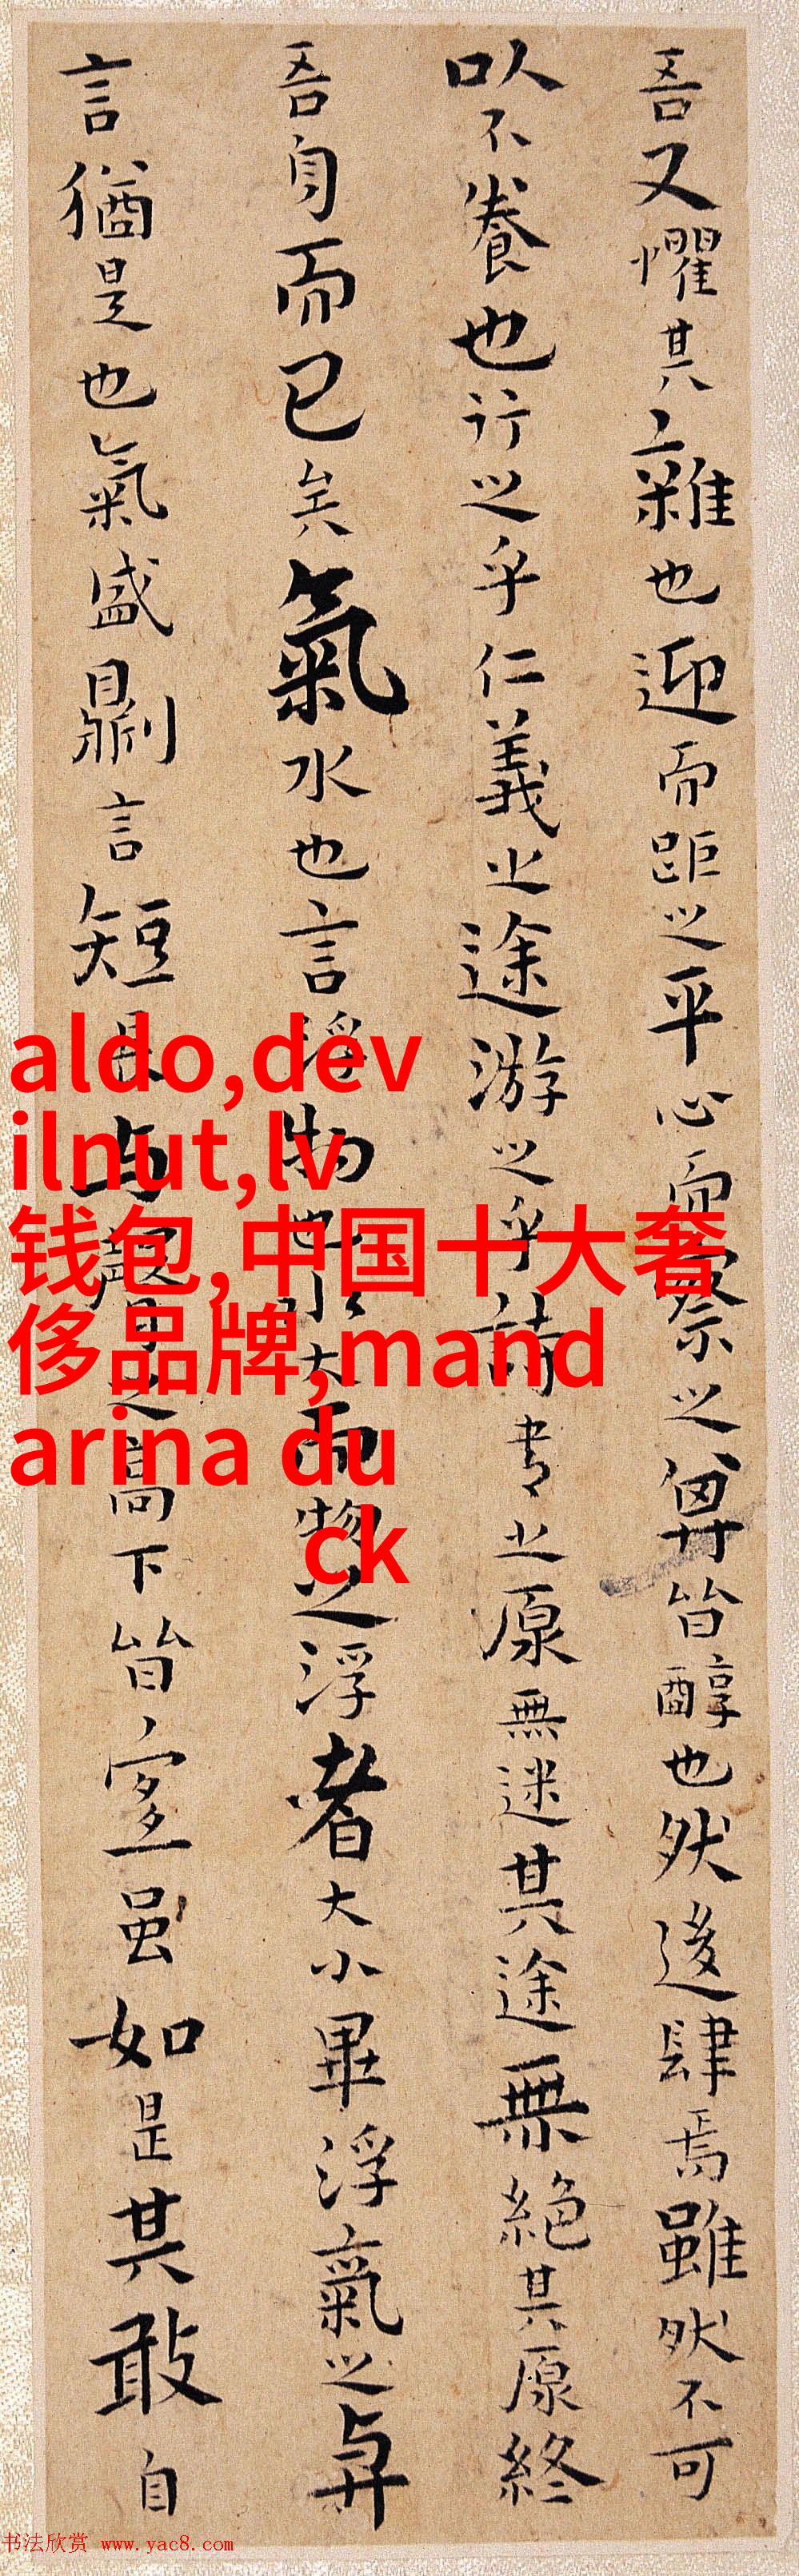 吾又懼其雜也迎而距之平心而察之其皆醇也然後肆焉雖然不可
以不養也行之乎仁義之途游之乎詩書之原無迷其途無絕其原終
吾身而已矣氣水也言浮物也水大而物之浮者大小畢浮氣之與
言猶是也氣盛則言短長與聲之高下皆宜虽如是其敢自
aldo,dev
ilnut,lv
钱包,中国十大奢
侈品牌,mand
arina du
ck
书法欣赏 www.yac8.com